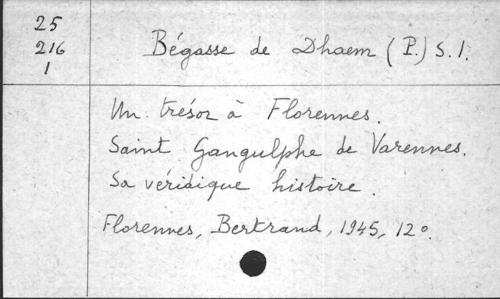 25
216
1
Bégasse de Dhaem (P.) S.I.
Un trésor à Florennes.
Saint Gangulphe de Varennes.
Sa véridique histoire.
Florennes, Bertrand, 1945, 12º.